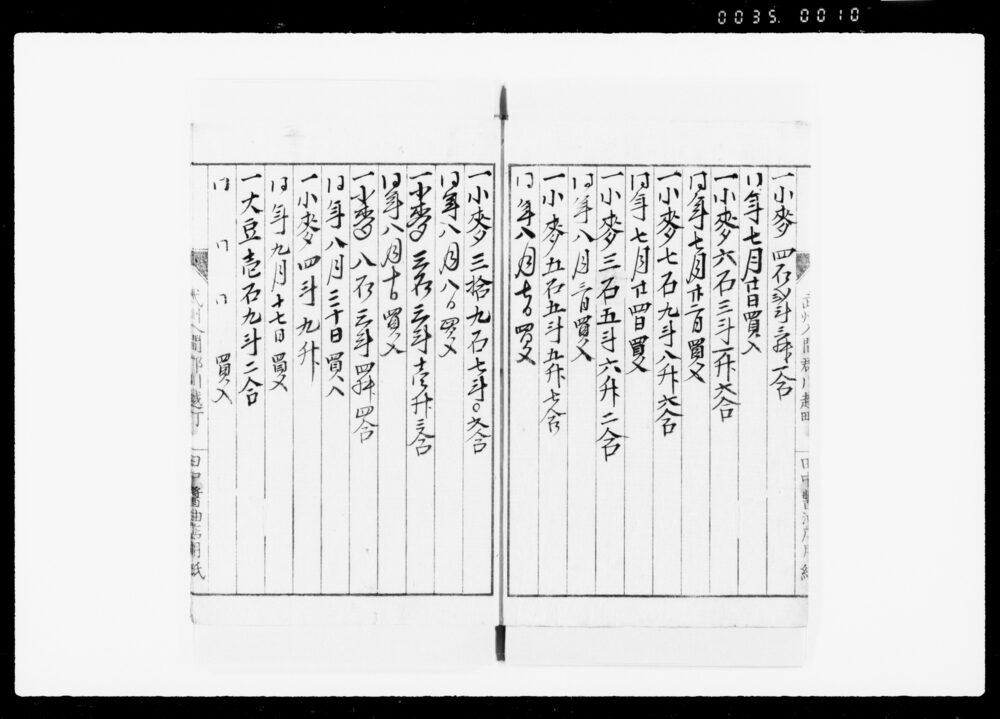 0035.0010
一小麦四石弐斗三升一合
同年七月廿日買入
一小麦六石三斗一升六合
同年七月廿二日買入
一小麦七石九斗八升六合
同年七月廿四日買入
一小麦三石五斗六升二合
同年八月二日買入
一小麦五石五斗五升七合
同年八月七日買入
武州入間郡川越町
田中醤油店用紙
一小麦三拾九石七斗〇六合
同年八月八日買入
一小麦三石三斗壱升三合
同年八月十日買入
一小麦八石三斗四升四合
同年八月三十日買入
一小麦四斗九升
同年九月十七日買入
一大豆壱石九斗二合
同 同 同 買入
武州入間郡川越町
田中醤油店用紙